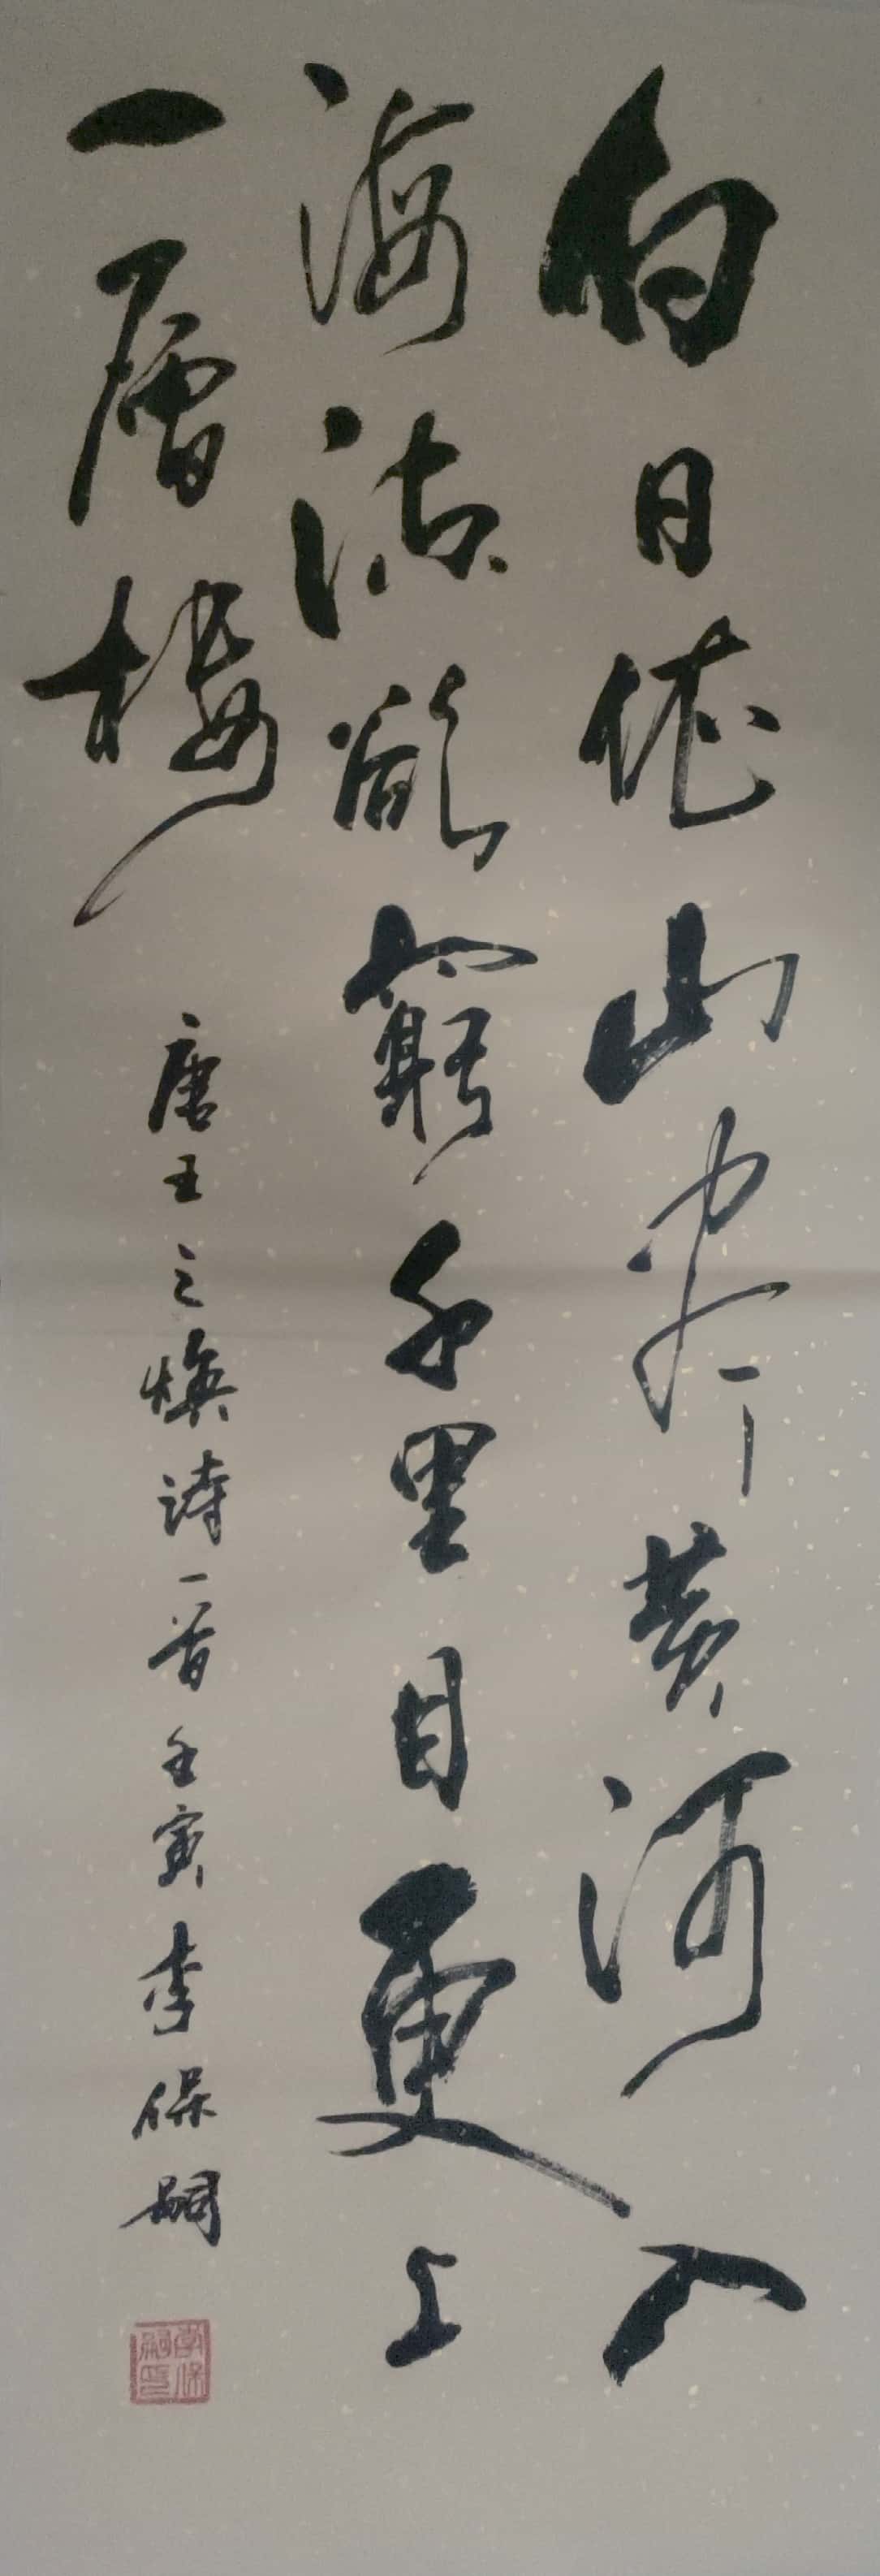 白日依山盡黄河入
海流欲窮千里目更上
一層樓
唐王之焕詩一首 壬寅 李保嗣
李保嗣印